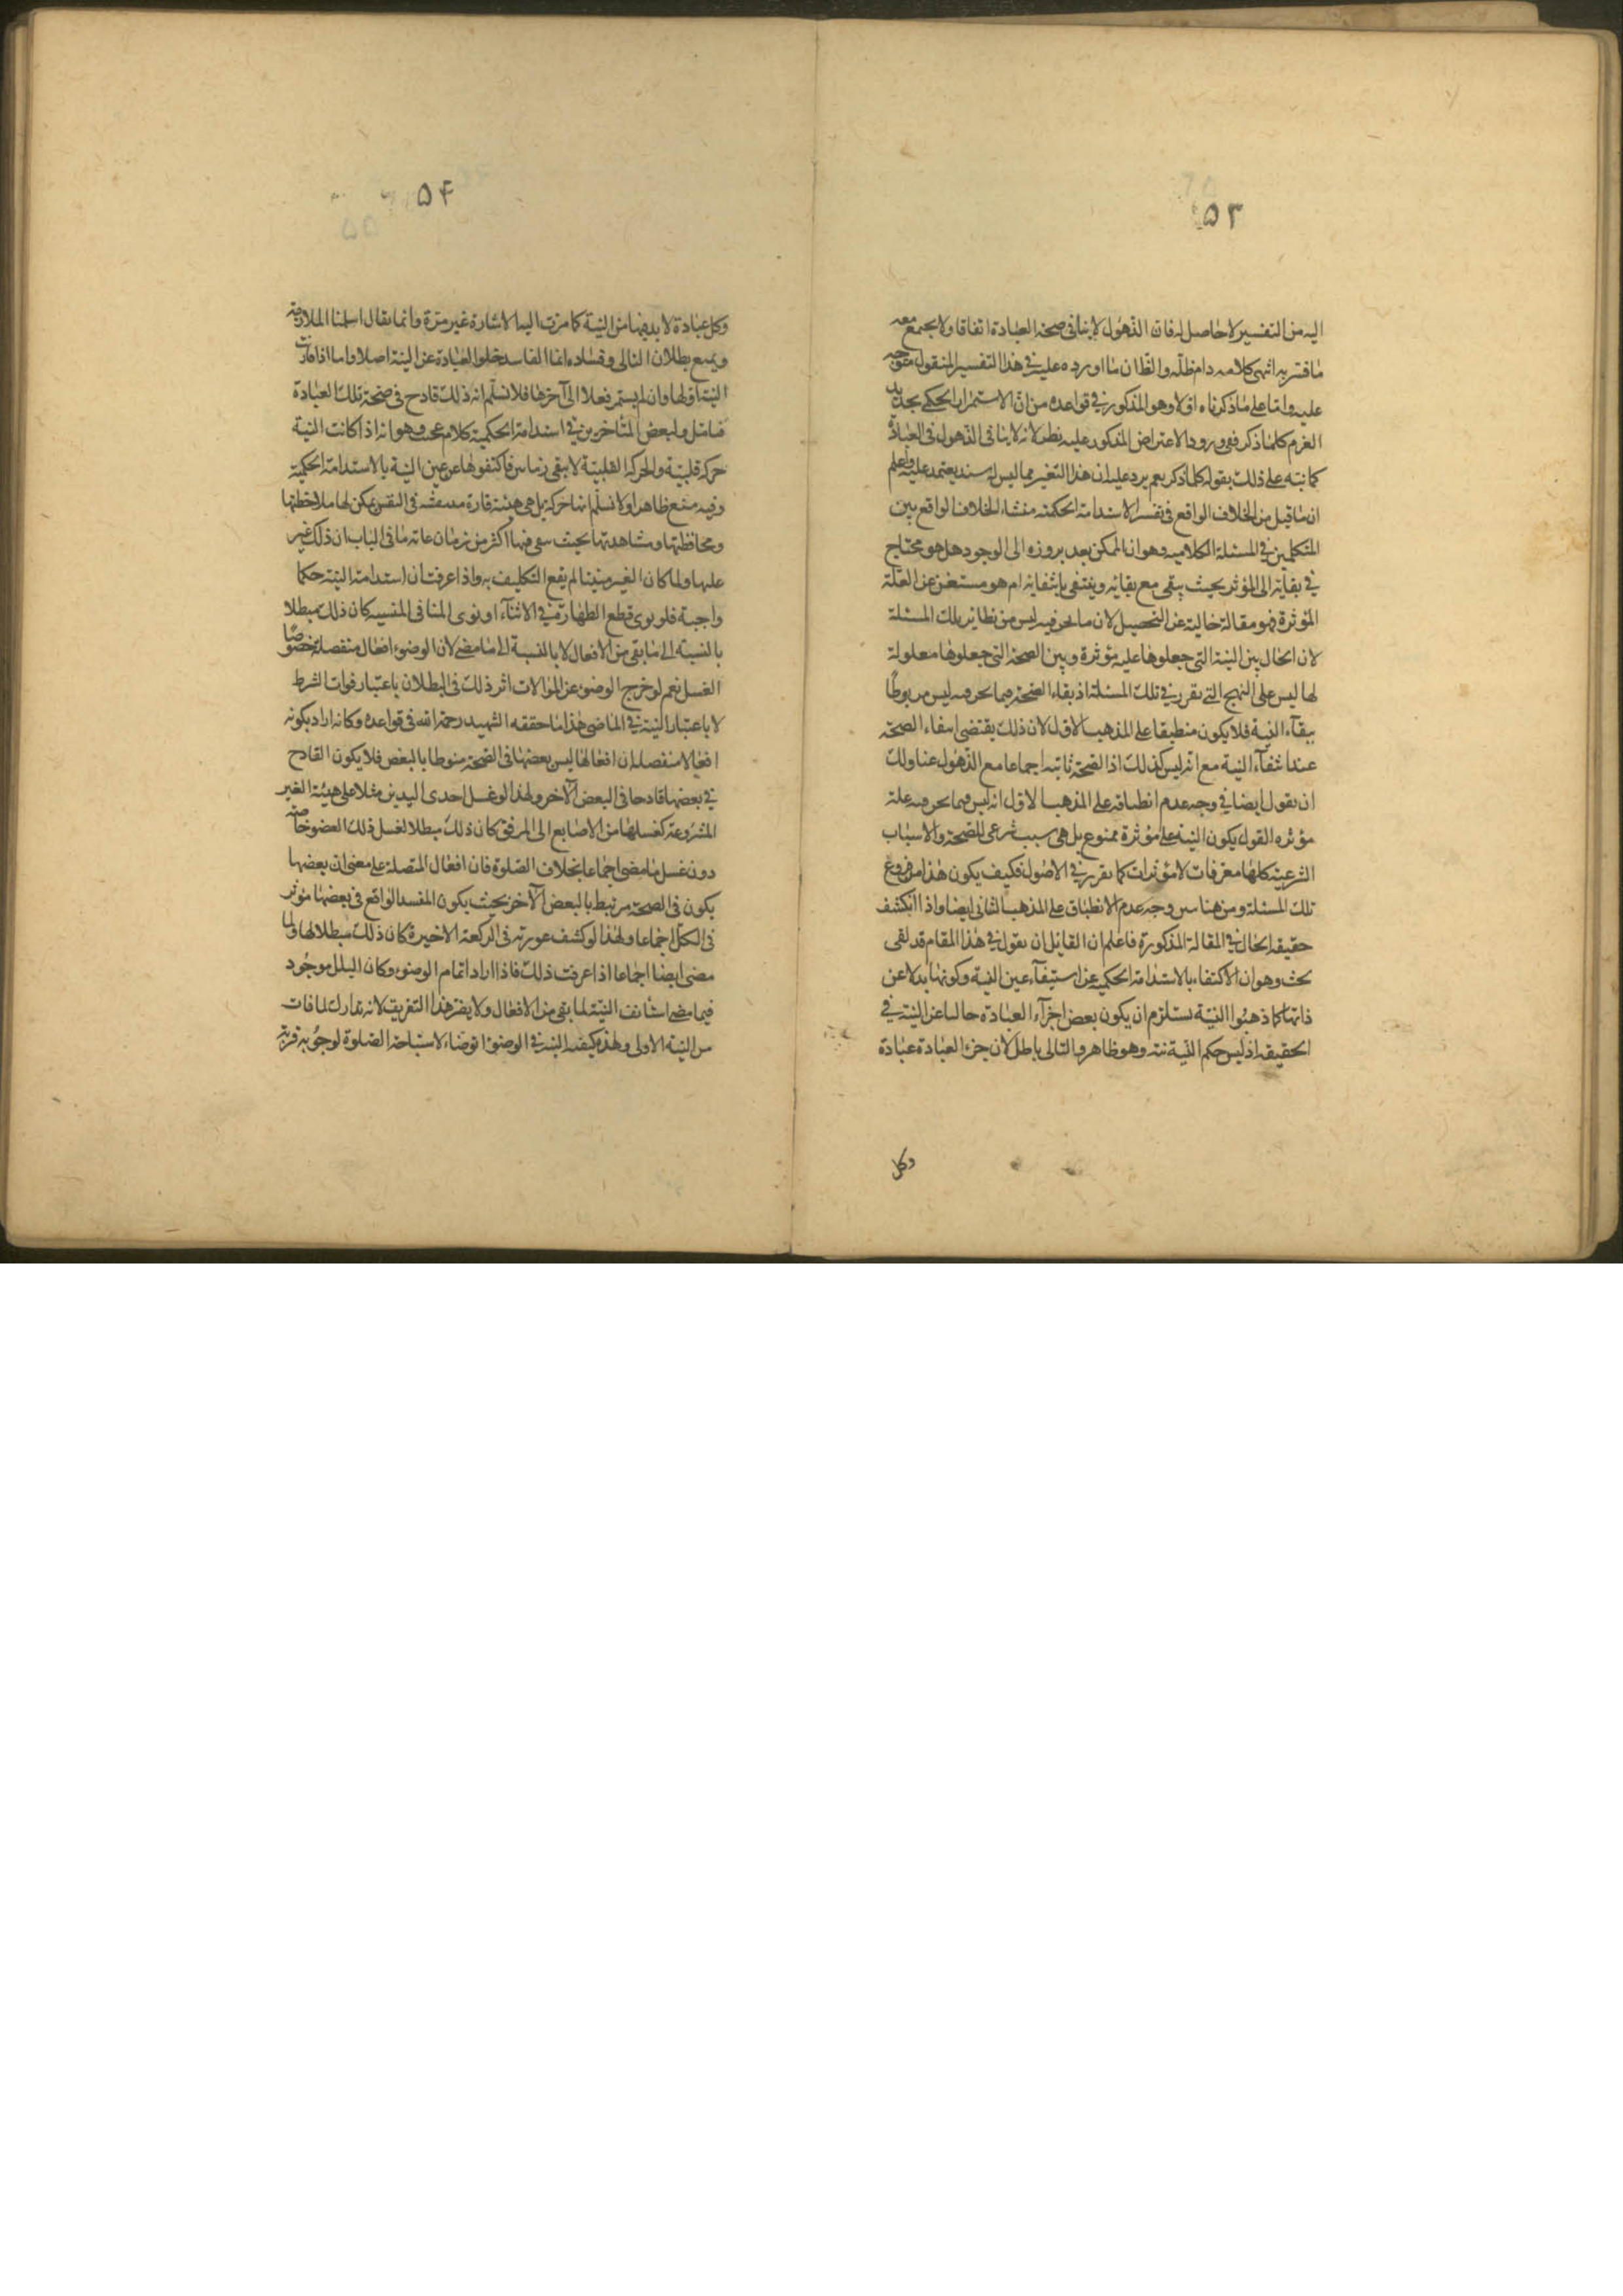 ۵۳
اليه من التفسير لا حاصل له فان الذهول لا ينافى صحة العبادة اتفاقا ولا يجتمع معه
ما فسر به انتهى كلامه دام ظله والظان ما اورده عليه في هذا التفسير المنقول متوجه
عليه واما على ما ذكرناه اولا وهو المذكور في قواعده من ان الاستمرار الحكمى تجديد
العزم كلما ذكر ففى ورود الاعتراض المذكور عليه نظر لانه لا ينافى الذهول فى العبادة
كما نبه على ذلك بقوله كلما ذكر نعم يرد عليه ان هذا التفسير مما ليس له سند يعتمد عليه واعلم
ان ما قيل من الخلاف الواقع فى تفسير الاستدامة الحكمية منشاء الخلاف الواقع بين
المتكلمين في المسئلة الكلاميه وهو ان الممكن بعد بروزه الى الوجود هل هو محتاج
في بقائه الى المؤثر بحيث يبقى مع بقائه وينتفى بانتفائه ام هو مستغن عن العلة
المؤثرة فهو مقالة خالية عن التحصيل لان ما نحن فيه ليس من نظاير تلك المسئلة
لان الحال بين النية التى جعلوها علة مؤثرة وبين الصحة التى جعلوها معلولة
لها ليس على النهج التى تقرر في تلك المسئلة اذ بقاء الصحة فيما نحن فيه ليس مربوطا
ببقآء النية فلا يكون منطبقا على المذهب الاول لان ذلك يقتضى انتفاء الصحة
عند انتفآء النية مع انه ليس كذلك اذ الصحة ثابتة اجماعا مع الذهول عنها ولك
ان تقول ايضا في وجه عدم انطباقه على المذهب الاول انه ليس فيما نحن فيه علة
مؤثره القول بكون النية علة مؤثرة ممنوع بل هى سبب شرعى للصحة والاسباب
الشرعية كلها معرفات لا مؤثرات كما تقرر في الاصول فكيف يكون هذا من فروع
تلك المسئلة ومن هنا تبين وجه عدم الانطباق على المذهب الثانى ايضا واذا انكشف
حقيقة الحال في المقالة المذكورة فاعلم ان القائل ان يقول في هذا المقام قد لقى
بحث وهو ان الاكتفاء بالاستدامة الحكميه عن استيفآء عين النية وكونها بدلا عن
ذاتها كما ذهبوا النية يستلزم ان يكون بعض اجزآء العبادة خاليا عن النية في
الحقيقة اذ ليس حكم النية نية وهو ظاهر والتالى باطل لان جزء العبادة عبادة
وكل
۵۴
وكل عبادة لا بد فيها من النية كما مرت اليه الاشارة غير مرة وانما يقال اسلمنا الملازمة
ويمنع بطلان التالى وفساده انما الفاسد خلو العبادة عن النية اصلا واما اذا قارنت
النية اولها وان لم يستمر فعلا الى آخرها فلا نسلم انه ذلك قادح فى صحة تلك العبادة
فتامل ولبعض المتأخرين في استدامة الحكمية كلام عجب وهو انه اذا كانت النية
حركة قلبية والحركة القلبية لا يبقى زمانين فاكتفوا لها عن عين النية بالاستدامة الحكمية
وفيه منع ظاهر اولا نسلم انها حركة بل هى هيئة قارة منتقشة فى النفس يمكن لها ملاحظتها
ومحافظتها ومشاهدتها بحيث تبقى فيها اكثر من زمان غاية ما فى الباب ان ذلك غير
عليها ولما كان الغير متينا لم يقع التكليف به واذا عرفت ان استدامة النية حكما
واجبة فلو نوى قطع الطهارة في الاثنآء او نوى المنافى المنسيه كان ذلك مبطلا
بالنسبة الى ما بقى من الافعال لا بالنسبة الى ما مضى لان الوضوء افعال منفصلة خصوصا
الغسل نعم لو خرج الوضوء عن الموالات اثر ذلك فى البطلان باعتبار فوات الشرط
لا باعتبار النية في الماضى هذا ما حققه الشهيد رحمة الله فى قواعده وكانه اراد بكونه
افعالا منفصلة ان افعالها ليس بعضها فى الصحة منوطا بالبعض فلا يكون القادح
في بعضها قادحا فى البعض الآخر ولهذا لو غسل احدى اليدين مثلا على هيئة الغير
المشروعة كغسلها من الاصابع الى المرفق كان ذلك مبطلا لغسل ذلك العضو خاصة
دون غسل ما مضى اجماعا بخلاف الصلوة فان افعال المتصلة على معنى ان بعضها
يكون فى الصحة مرتبط بالبعض الآخر بحيث يكون المفسد الواقع فى بعضها مؤثر
فى الكل اجماعا ولهذا لو كشف عورته فى الركعة الاخيرة كان ذلك مبطلا لها ولما
مضى ايضا اجماعا اذا عرفت ذلك فاذا اراد اتمام الوضوء وكان البلل موجود
فيما مضى استأنف النية لما بقى من الافعال ولا يضر هذا التفريق لانه تدارك لما فات
من النية الاولى ولهذه كيفية النية في الوضوء اتوضاء لاستباحة الصلوة لوجوبه قربة